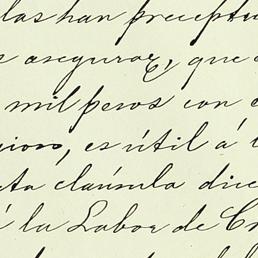 las han preceptu
s asegurar, que
mil pesos con
, es útil á
ta cláusula dice
á la Labor de Cr